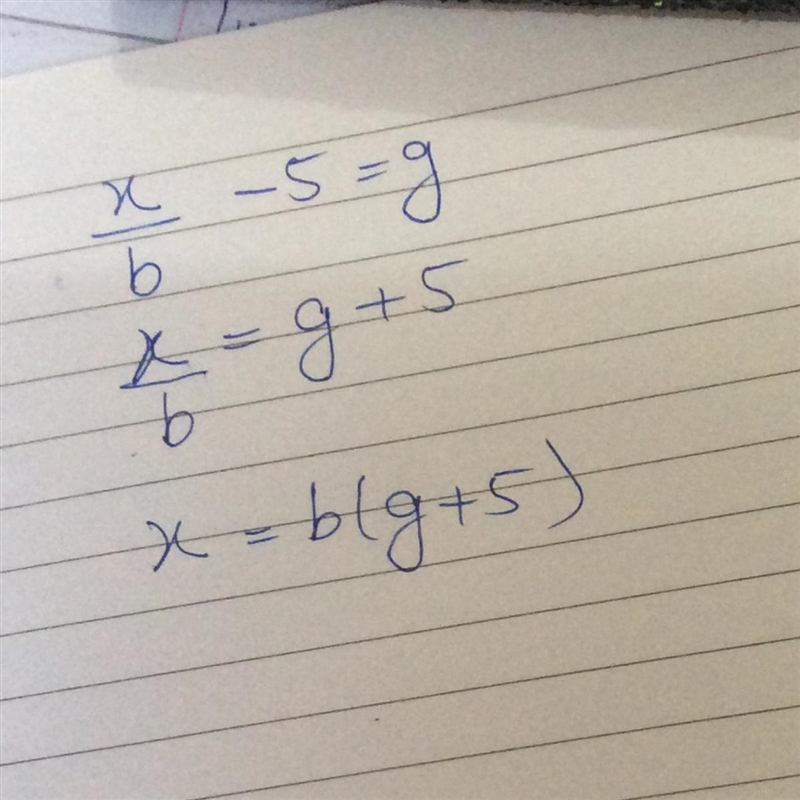 x/b - 5 = g
x/b = g + 5
x = b(g+5)